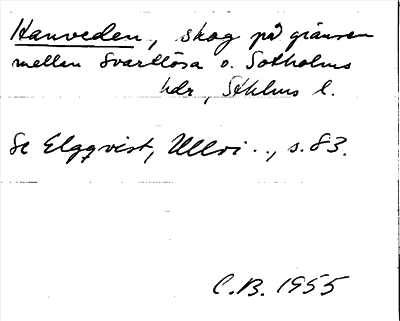 Hanveden, skog på gränsen
mellan Svartlösa o. Sotholms
hdr, Sthlms l.
Se Elgqvist, Ullvi.., s. 83.
C.B. 1955